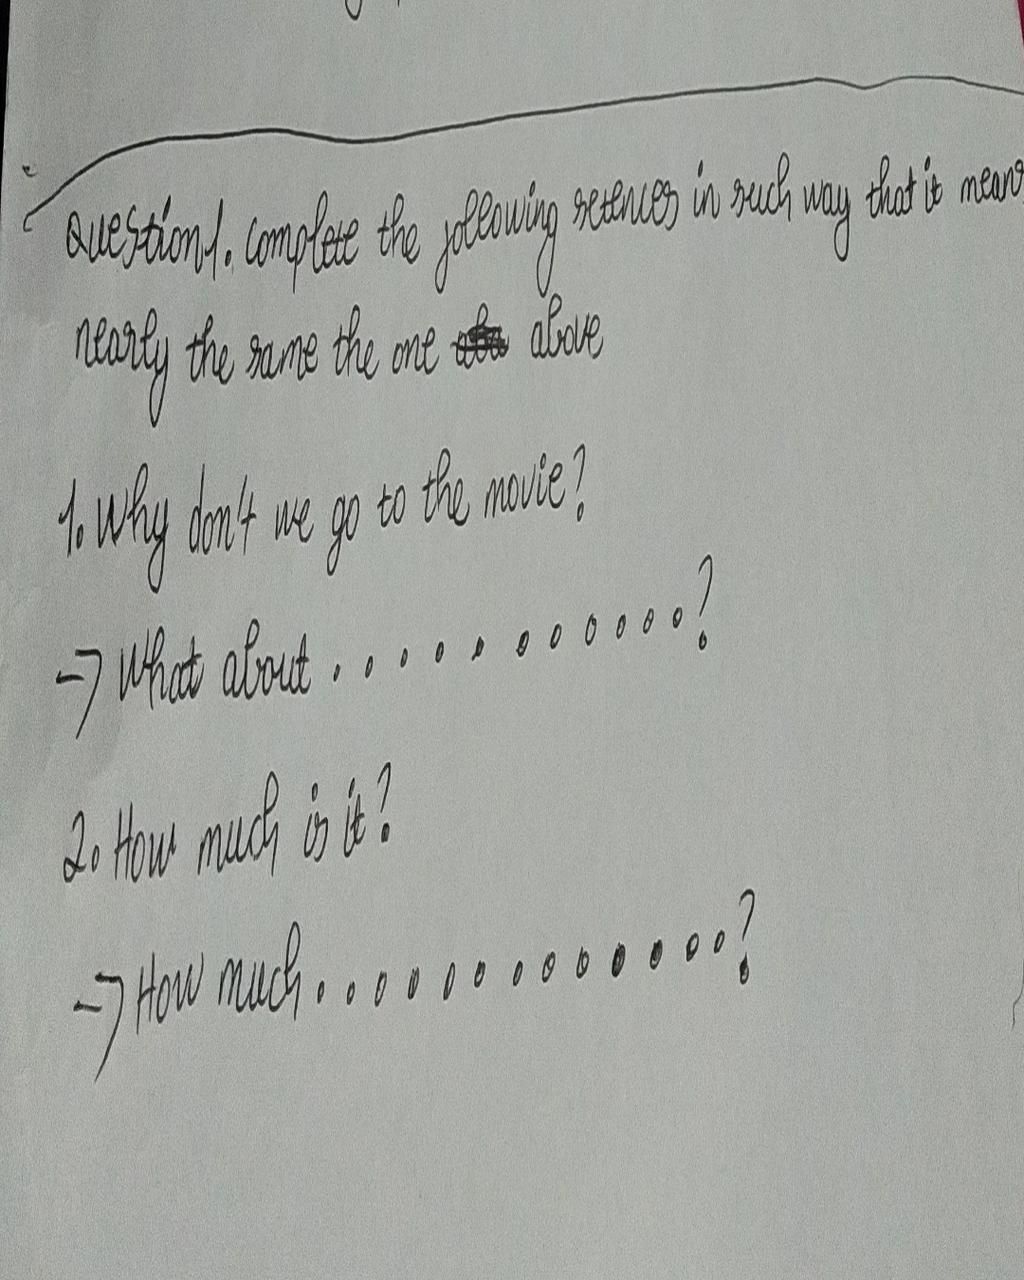 Question1. Complete the following setences in such way that it means
nearly the same the one above
1. Why don't we go to the movie?
→ What about . . . . . . . . . . . ?
2. How much is it?
→ How much . . . . . . . . . . . . . ?